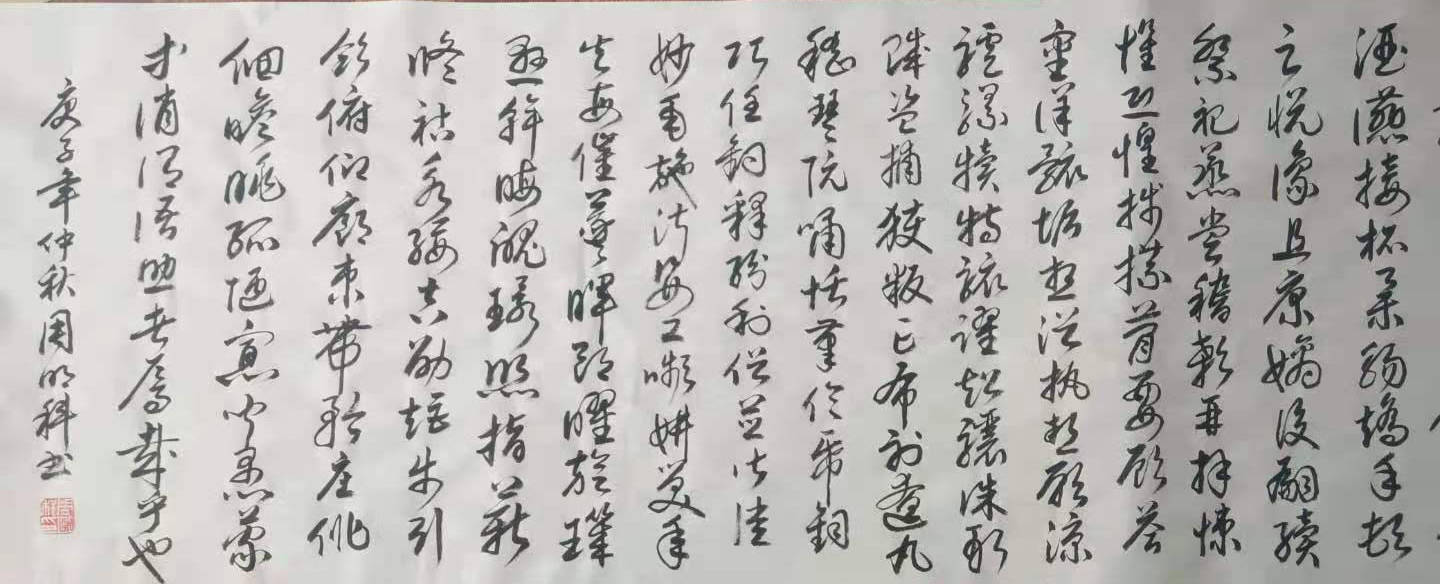 酒讌接杯举觞矫手顿
足悦豫且康嫡後嗣續
祭祀蒸尝稽颡再拜悚
惧恐惶牋牒简要顾答
審詳骸垢想浴执热願凉
驢騾犢特駭躍超驤誅斬
賊盗捕獲叛亡布射遼丸
嵇琴阮嘯恬筆倫紙鈞
巧任釣釋紛利俗並皆佳
妙毛施淑姿工嚬妍笑年
矢每催羲暉朗曜旋璣
懸斡晦魄環照指薪
修祜永綏吉劭矩步引
領俯仰廊束帶矜庄徘
徊瞻眺孤陋寡闻愚蒙
等誚謂語助者焉哉乎也
庚子年仲秋周明科书